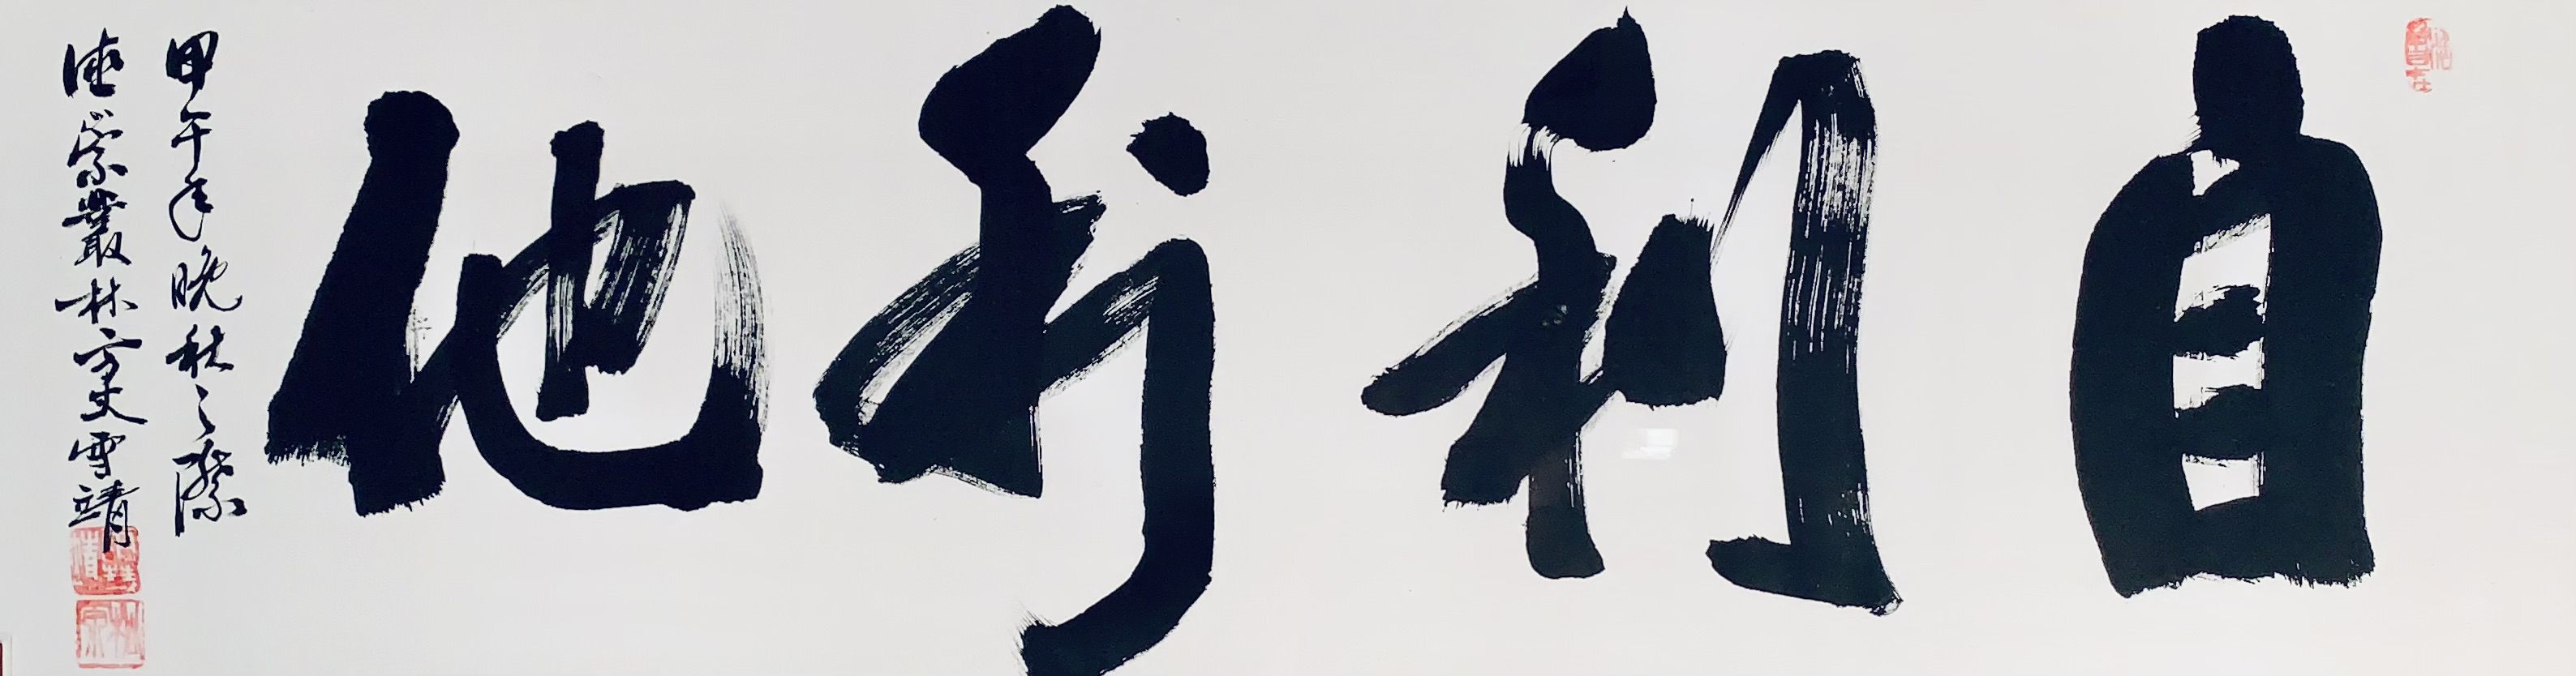 自利利他
甲午年晚秋之際
德崇叢林方丈雪靖